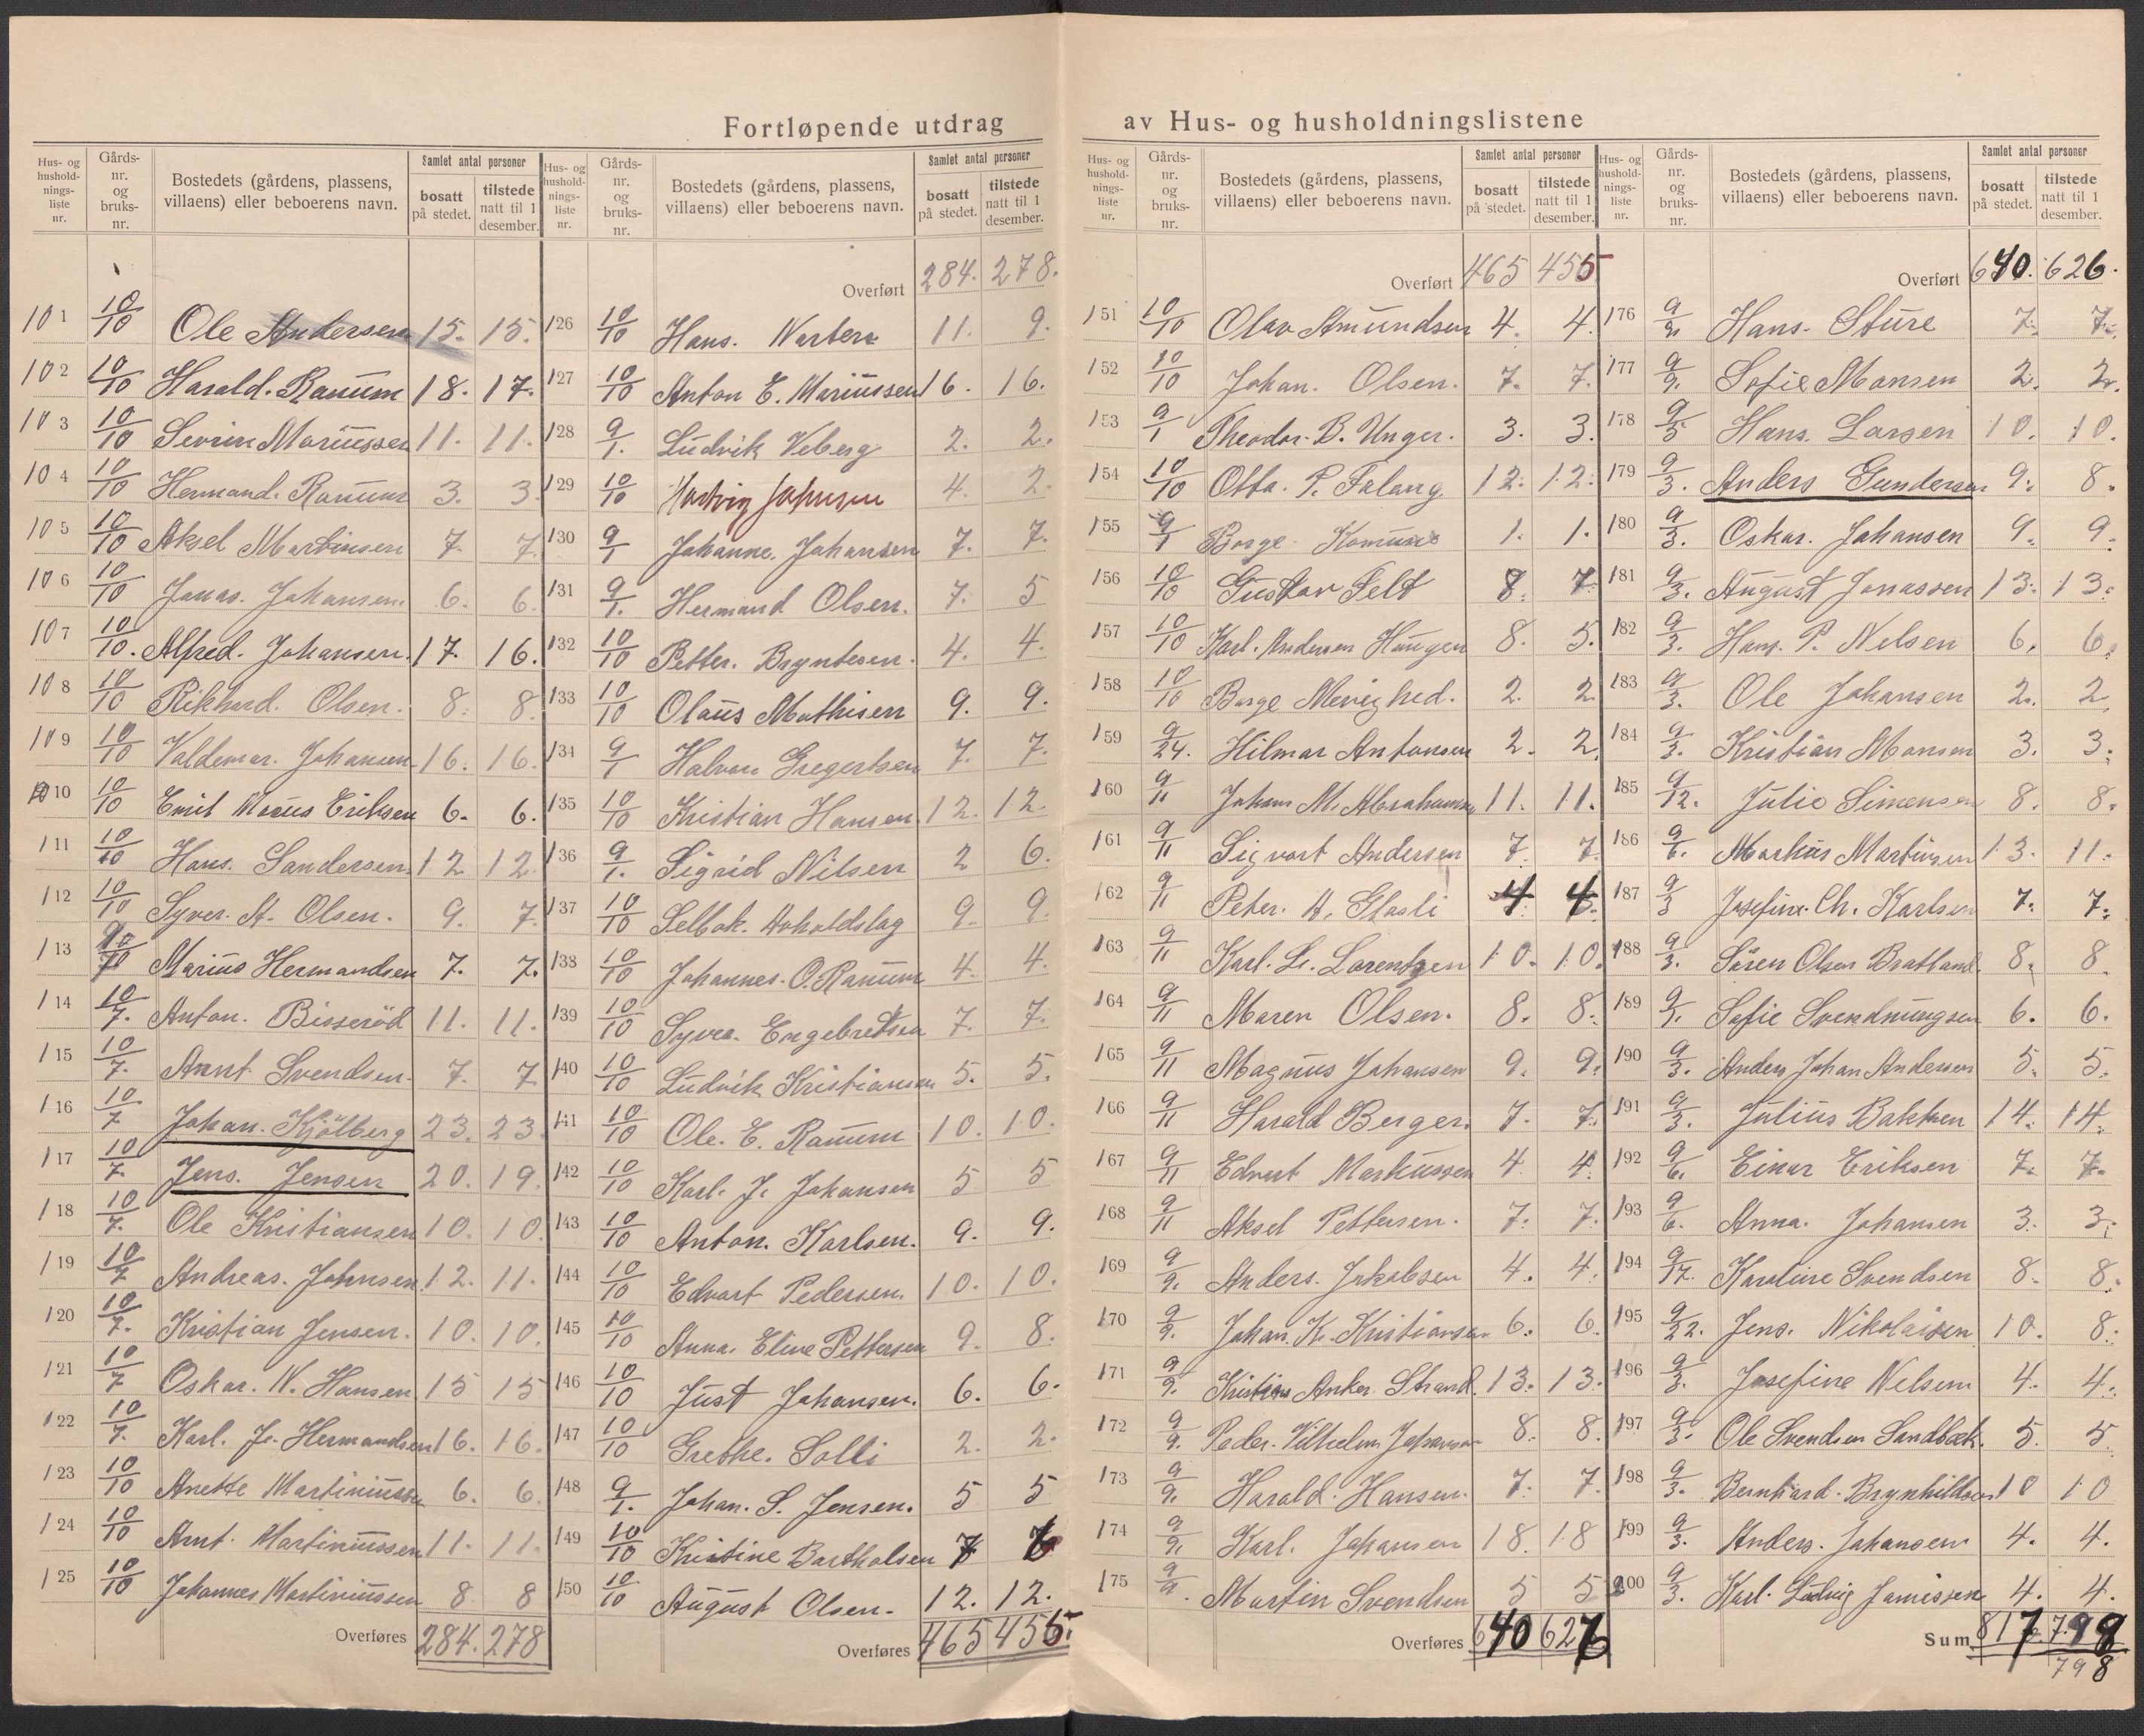 Fortløpende utdrag av Hus- og husholdningslistene
Hus- og hushold-nings-liste nr. Gårds-nr. og bruks-nr. Bostedets (gårdens, plassens, villaens) eller beboerens navn. Samlet antal personer bosatt på stedet. tilstede natt til 1 desember.
101 10/10 Ole Andersen 15. 15.
102 10/10 Harald. Ranum 18. 17.
103 10/10 Sevrin Mariussen 11. 11.
104 10/10 Hermand. Ranum 3. 3
105 10/10 Aksel Martinsen 7. 7
106 10/10 Jonas. Johansen. 6. 6.
107 10/10. Alfred. Johansen. 17. 16.
108 10/10 Rikhard. Olsen. 8. 8.
109 10/10 Valdemar. Johansen 16. 16.
110 10/10 Emil Marius Eriksen 6. 6.
111 10/10 Hans. Sandersen. 12 12
112 10/10 Syver. A. Olsen. 9. 7
113 10/7 Marius Hermandsen 7. 7.
114 10/7. Anton. Bisserød 11. 11.
115 10/7. Arnt Svendsen. 7. 7
116 10/7 Johan. Kjölberg 23. 23.
117 10/7. Jens. Jensen 20. 19.
118 10/7. Ole Kristiansen 10. 10.
119 10/7 Andreas. Johnsen. 12. 11.
120 10/7. Kristian Jensen. 10. 10.
121 10/7 Oskar. W. Hansen 15 15
122 10/7. Karl. J. Hermandsen 16. 16.
123 10/10 Anette Martiniussen 6. 6.
124 10/10 Arnt. Martiniussen 11. 11.
125 10/10 Johannes Martiniussen 8 8
Overføres 284. 278
Hus- og hushold-nings-liste nr. Gårds-nr. og bruks-nr. Bostedets (gårdens, plassens, villaens) eller beboerens navn. Samlet antal personer bosatt på stedet. tilstede natt til 1 desember.
Overført 284. 278.
126 10/10 Hans. 11. 9.
127 10/10 Anton E. Mariussen 16. 16.
128 9/1. Ludvik Veberg 2. 2.
129 10/10 Hartvig Johnsen 4. 2.
130 9/1 Johanne. Johansen 7. 7.
131 9/1. Hermand Olsen. 7. 5
132 10/10 Petter. Bryntesen. 4. 4.
133 10/10 Olaus Mathisen 9. 9.
134 9/1 Halvor Gregertsen 7. 7.
135 10/10 Kristian Hansen. 12. 12.
136 9/1. Sigrid Nilsen 2 6.
137 10/10 Selbak. Avholdslag 9. 9.
138 10/10 Johannes. O. Ranum 4. 4.
139 10/10 Syver. Engebretsen 7. 7.
140 10/10 Ludvik Kristiansen 5. 5.
141 10/10 Ole. E. Ranum 10. 10.
142 10/10 Karl. J. Johansen 5 5
143 10/10 Anton. Karlsen. 9. 9.
144 10/10 Edvart Pedersen. 10. 10.
145 10/10 Anna. Eline Pettersen 9. 8.
146 10/10 Just Johansen. 6. 6.
147 10/10 Grethe. Solli 2. 2.
148 9/1. Johan. S. Jensen. 5 5
149 10/10 Kristine Bartholsen 7
150 10/10 August Olsen. 12. 12.
Overføres 465 455.
Hus- og hushold-nings-liste nr. Gårds-nr. og bruks-nr. Bostedets (gårdens, plassens, villaens) eller beboerens navn. Samlet antal personer bosatt på stedet. tilstede natt til 1 desember.
Overført 465 455
151 10/10 Olav Amundsen 4. 4.
152 10/10 Johan. Olsen. 7. 7.
153 9/1 Theodor. B. Unger. 3. 3.
154 10/10 Otto. P. Falang. 12. 12.
155 9/1 Borge Komune 1. 1.
156 10/10 Gustav Felt 8. 7.
157 10/10 Karl. Andersen Haugen 8. 5.
158 10/10 Borge Menighed. 2. 2
159 9/24. Hilmar Antonsen 2. 2.
160 9/11 Johan M. Abrahamsen 11. 11.
161 9/11 Sigvart Andersen 7 7.
162 9/11 Peter. A. Glosli 4. 4.
163 9/11 Karl. L. Lorentzen 10. 10.
164 9/11 Maren Olsen. 8. 8.
165 9/11 Magnus Johansen 9. 9.
166 9/11 Harald Berger. 7. 7.
167 9/11 Edvart Markussen 4 4.
168 9/11 Aksel Pettersen. 7. 7.
169 9/9. Anders. Jakobsen 4. 4.
170 9/9. Johan. K. Kristiansen 6. 6.
171 9/9. Kristian Anker. Strand. 13. 13.
172 9/9. Peder. Vilhelm Johansen 8. 8.
173 9/9. Harald. Hansen. 7. 7.
174 9/9. Karl. Johansen 18. 18
175 9/9. Martin Svendsen 5 5
Overføres 640 627
Hus- og hushold-nings-liste nr. Gårds-nr. og bruks-nr. Bostedets (gårdens, plassens, villaens) eller beboerens navn. Samlet antal personer bosatt på stedet. tilstede natt til 1 desember.
Overført 640. 626.
176 9/9. Hans. Sture 7. 7.
177 9/9. Sofie Monsen 2. 2.
178 9/5 Hans. Larsen 10. 10.
179 9/3. Anders Gundersen 9. 8.
180 9/3. Oskar. Johansen 9. 9.
181 9/3. August Jonassen 13. 13.
182 9/3. Hans. P. Nelsen 6. 6.
183 9/3. Ole Johansen 2. 2
184 9/3. Kristian Monsen 3. 3.
185 9/12. Julie Simensen 8. 8.
186 9/6. Markus Martinsen 13. 11.
187 9/3 Josefine. Ch. Karlsen 7. 7.
188 9/3. Sören Olsen Bratland. 8. 8.
189 9/9. Sofie Svendnungsen 6. 6.
190 9/3. Anders Johan Andersen 5. 5.
191 9/3. Julius Bakken 14. 14.
192 9/6. Einar Eriksen 7. 7.
193 9/6. Anna. Johansen 3. 3.
194 9/17. Karoline Svendsen 8. 8.
195 9/22. Jens. Nikolaisen 10. 8.
196 9/3. Josefine Nelsen 4. 4.
197 9/3. Ole Svendsen Sandbæk. 5. 5.
198 9/3. Bernhard. Brynhildsen 10 10
199 9/3. Anders. Johansen 4. 4.
200 9/3. Karl. Ludvig Jonissen 4. 4.
Sum 817. 798
798